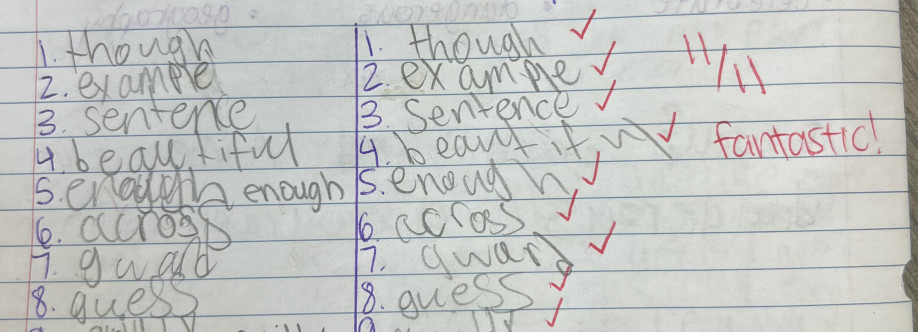 1. though
2. example
3. sentence
4. beautiful
5. enough enough
6. across
7. guard
8. guess
1. though
2. example
3. Sentence
4. beautiful
5. enough
6. across
7. guard
8. guess
11/11
fantastic!